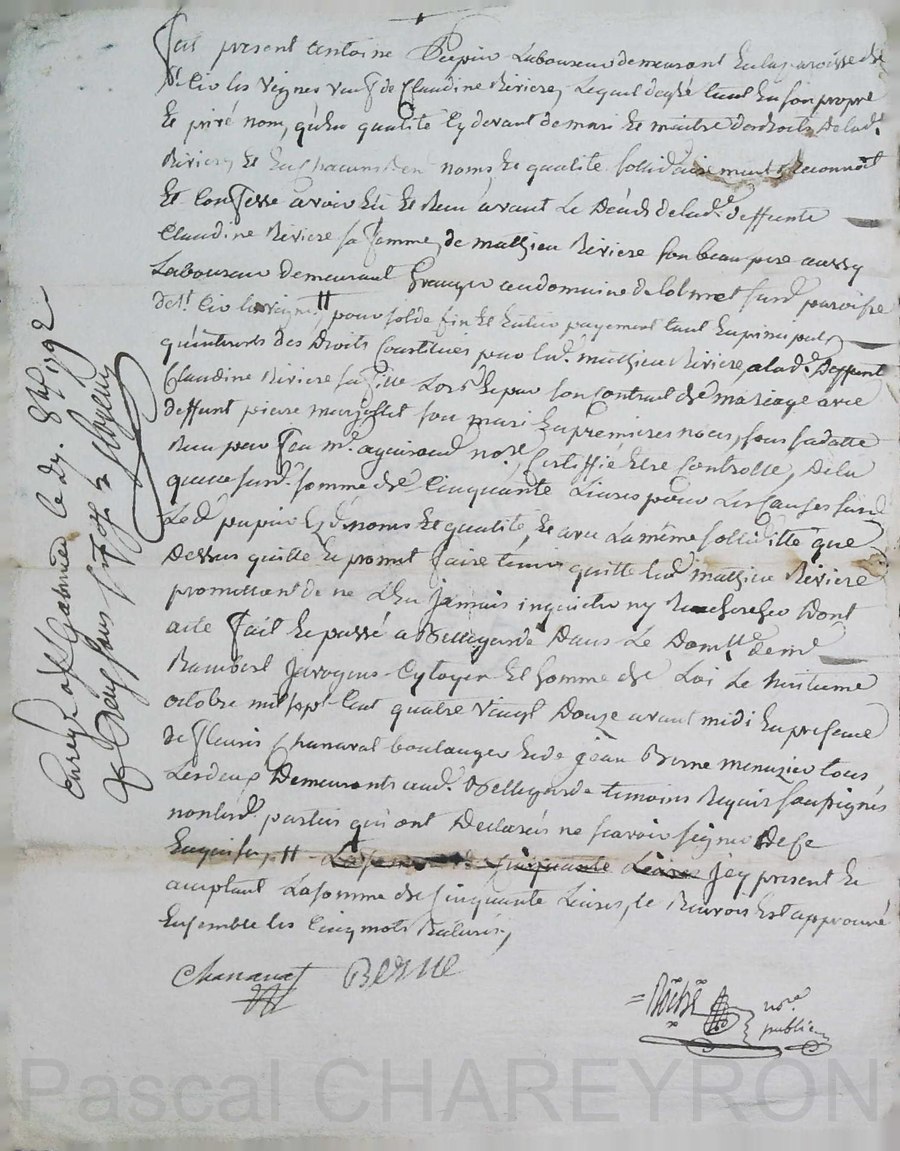 fut present antoine Pupier Laboureur demeurant en la parroisse de
St Cir les Vignes veuf de Claudine Riviere, Lequel de gré tant en son propre
et privé nom, qu'en qualité cy devant de mari et maitre des droits de lad.
Riviere, et en chacun noms et qualité sollidairement reconnoît
et Confesse avoir eû et Reçu avant Le Décés de lad.e deffunte
Claudine Riviere sa femme, de mathieu Riviere son beau pere aussy
Laboureur demeurant Granger au domaine de susd. paroisse
de St. Cir les vignes # pour solde fin et entier payement tant en principal
qu'interets des Droits Constitués par led. mathieu Riviere, a lad. Deffunte
Claudine Riviere sa fille Lors et par son Contrat de mariage avec
deffunt pierre son mari en premieres noces, sous sa datte
Reçu par feu me. nore. Certiffié etre Controllé, de la
quelle susd. somme de Cinquante Livres pour Les Causes susd.
Led. pupier ez d. noms et qualité, et avec la même sollidité que
Dessus quitte et promet faire tenir quitte led. mathieu Riviere
promettant de ne L'en jamais inquieter ny Rechercher Dont
acte fait et passé a Bellegarde Dans Le Domlle de me
Rambert Javogues Cytoyen et homme de Loi Le huitieme
octobre mil sept Cent quatre vingt Douze avant midi en presence
de fleuris Chanavat boulanger et de jean Berne menuzier tous
Les deux Demeurants aud. Bellegarde temoins Requis soussignés
non lesd. parties qui ont Declarés ne scavoir signer De ce
Enquises, # La somme de Cinquante Livres Icy present et
acceptant La somme de Cinquante Livres, le Renvois est approuvé
Ensemble les Cinq mots Raturés,
Chanavat BERNE
nore.
public
Enreg. a St Galmier le 29. 8bre 1792
Pascal CHAREYRON